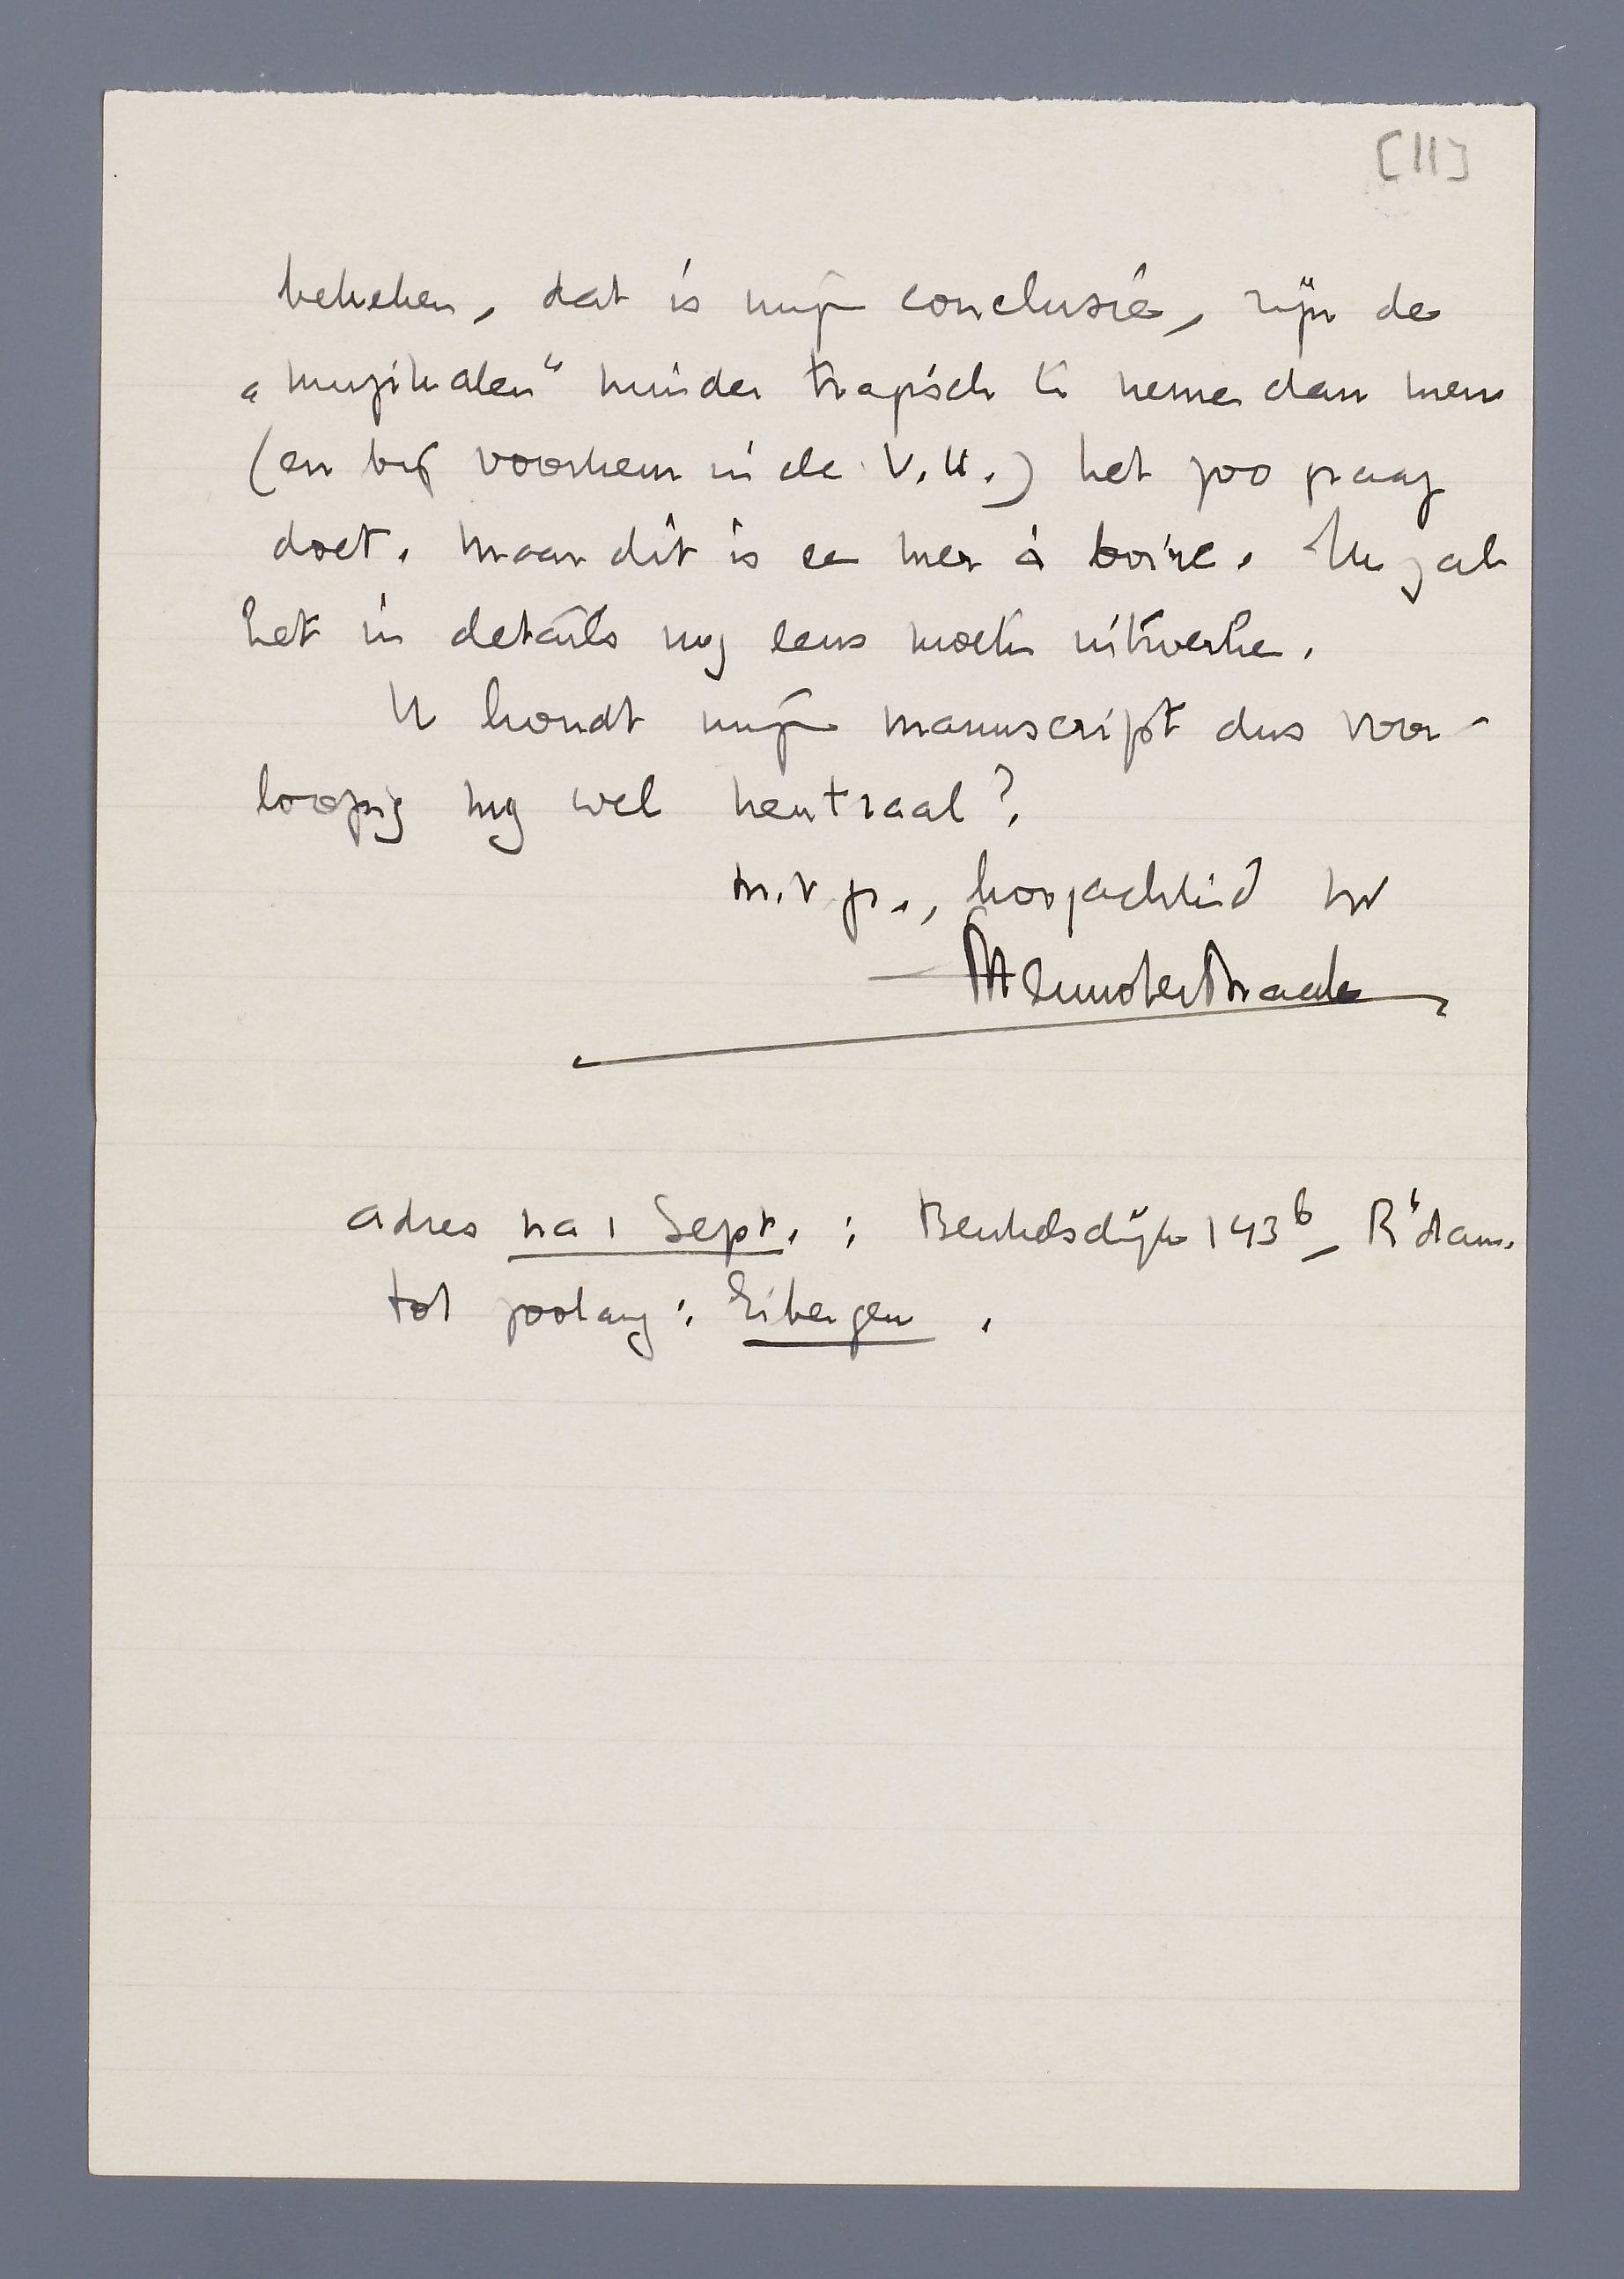 [11]
bekeken, dat is mijn conclusie, zijn de
„muzikalen" minder tragisch te nemen dan men
(en bijv voorheen in de V.U.) het zoo graag
doet. Maar dit is een mer à boire. Ik zal
het in details nog eens moeten uitwerken.
U houdt mijn manuscript dus voor-
loopig nog wel neutraal?
m.v.gr., hoogachtend uw
Menno ter Braak
adres na 1 Sept. : Beukelsdijk 143b, R'dam.
tot zoolang: Eibergen.